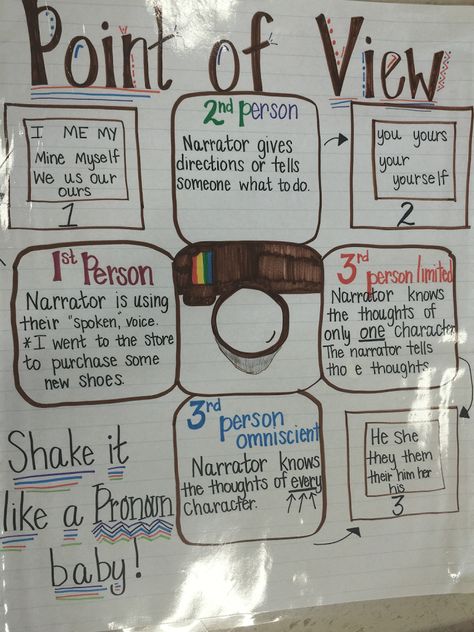 Point of View
I ME MY
Mine Myself
We us our
ours
1
2nd person
Narrator gives
directions or tells
someone what to do.
you yours
your
yourself
2
1st Person
Narrator is using
their "spoken" voice.
*I went to the store
to purchase some
new shoes.
3rd person limited
Narrator knows
the thoughts of
only one character
The narrator tells
tho e thoughts.
3rd person
omniscient
Narrator knows
the thoughts of every
character.
He she
they them
their him her
his
3
Shake it
like a Pronoun
baby!